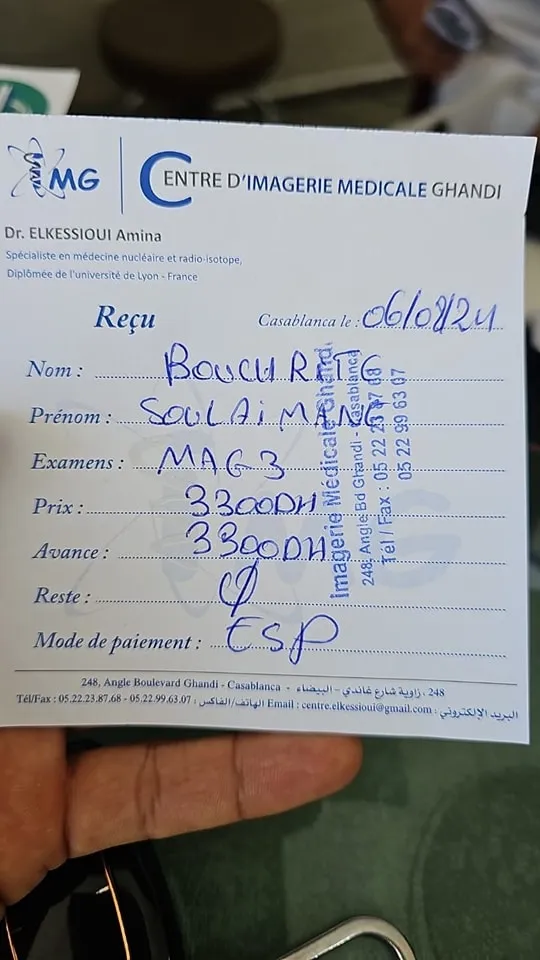 MG
CENTRE D'IMAGERIE MEDICALE GHANDI
Dr. ELKESSIOUI Amina
Spécialiste en médecine nucléaire et radio-isotope,
Diplômée de l'université de Lyon - France
Reçu
Casablanca le : 06/08/24
Nom :
Prénom : SOULAIMANE
Examens : MAG3
Prix : 3300DH
Avance : 3300DH
Reste : φ
Mode de paiement : ESP
Imagerie Médicale Ghandi
248, Angle Bd Ghandi - Casablanca
Tél / Fax : 05 22 23 87 68
05 22 99 63 07
248, Angle Boulevard Ghandi - Casablanca - 248، زاوية شارع غاندي - البيضاء
Tél/Fax : 05.22.23.87.68 - 05.22.99.63.07 : الهاتف/الفاكس Email : centre.elkessioui@gmail.com : البريد الإلكتروني